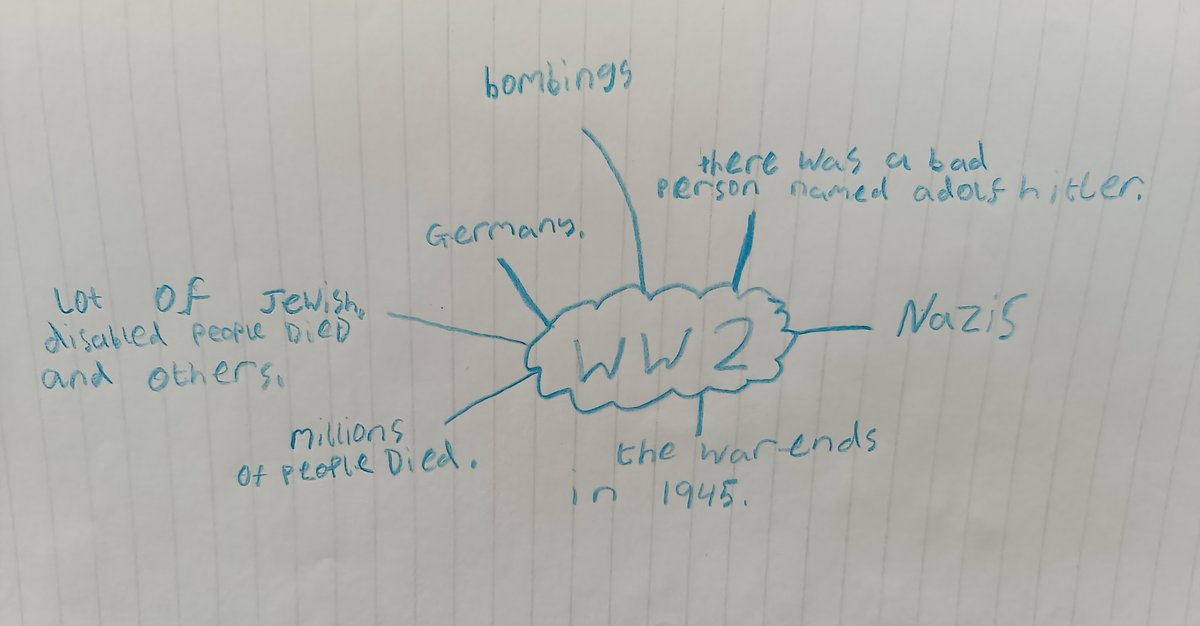 bombings
there was a bad
person named adolf hitler.
Germany.
Lot of Jewish,
disabled people Died
and others.
WW2
Nazis
millions
of people Died.
the war ends
in 1945.